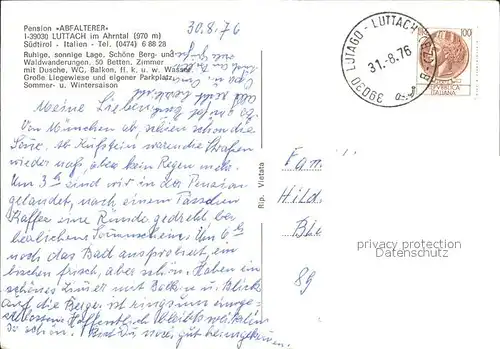 Pension «ABFALTERER»
I-39030 LUTTACH im Ahrntal (970 m)
Südtirol - Italien - Tel. (0474) 6 88 28
Ruhige, sonnige Lage. Schöne Berg- und
Waldwanderungen. 50 Betten. Zimmer
mit Dusche, WC, Balkon, fl. k. u. w. Wasser.
Große Liegewiese und eigener Parkplatz.
Sommer- u. Wintersaison
30.8.76
Meine Lieben
Von München ab, schien schon die
Sonne, ab Kufstein waren die Straßen
wieder naß, aber kein Regen mehr.
Um 3 h sind wir in der Pension
gelandet, nach einem Tässchen
Kaffee eine Runde gedreht bei
herrlichem Sonnenschein. Um 6 h
noch das Bad ausprobiert, ein
bischen frisch, aber schön. Haben ein
schönes Zimmer mit Balkon u. Blick
auf die Berge, ist ringsum einge-
schlossen. Hoffentlich bleibt's weiterhin
so schön. Seid Ihr gut heimgekommen.
39030 LUTAGO - LUTTACH
31.-8.76
(BZ)
100
REPVBBLICA
ITALIANA
Rip. Vietata
Fam
Hild
Bie
89
privacy protection
Datenschutz